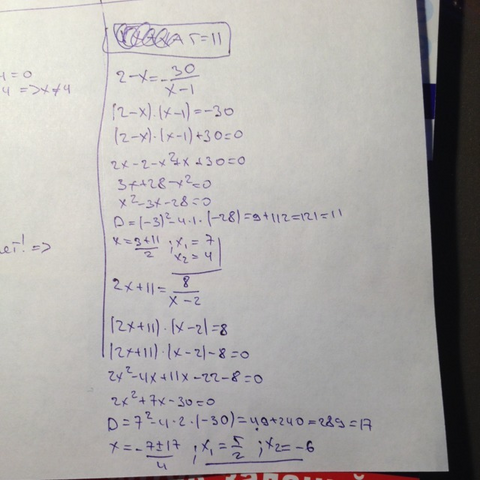 4=0
4 =>x≠4
ет! =>
Ат=11
2-x=-30/(x-1)
(2-x)·(x-1)=-30
(2-x)·(x-1)+30=0
2x-2-x²+x+30=0
3x+28-x²=0
x²-3x-28=0
D=(-3)²-4·1·(-28)=9+112=121=11
x=3+11/2 ; x₁=7
x₂=4
2x+11=8/(x-2)
(2x+11)·(x-2)=8
(2x+11)·(x-2)-8=0
2x²-4x+11x-22-8=0
2x²+7x-30=0
D=7²-4·2·(-30)=49+240=289=17
x=-7±17/4 ; x₁=5/2 ; x₂=-6